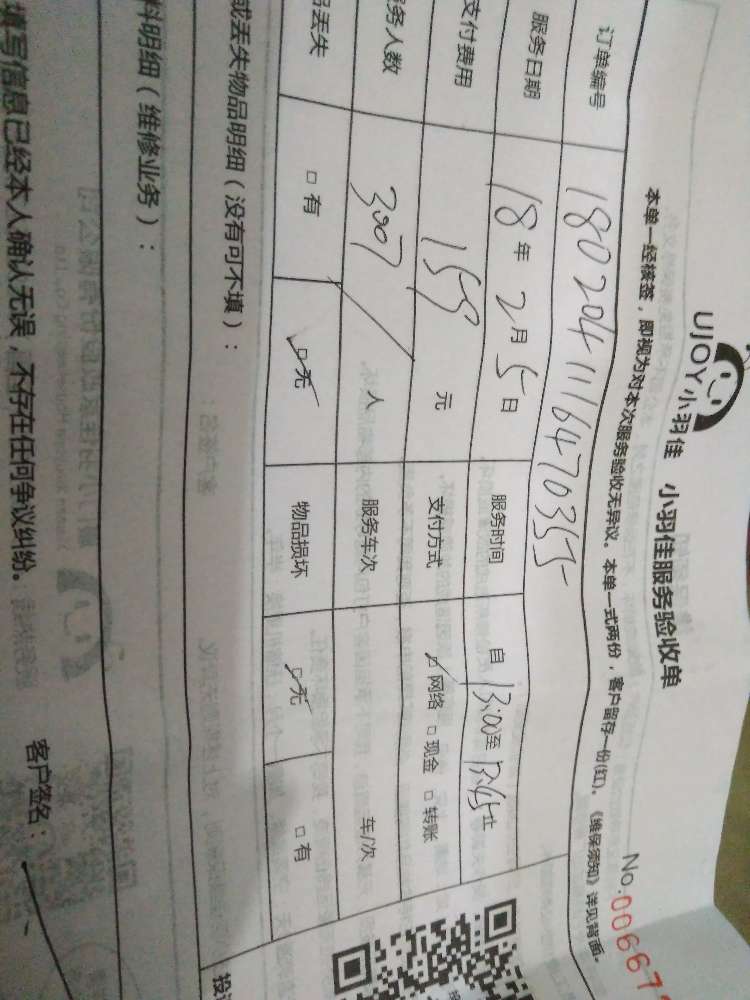 UJOY小羽佳 小羽佳服务验收单
No:00667
本单一经核签，即视为对本次服务验收无异议。本单一式两份，客户留存一份(红)。《维保须知》详见背面。
订单编号 1802041116470355
服务日期 18年2月5日 服务时间 自13:00至17:45止
支付费用 159元 支付方式 网络 现金 转账
务人数 人 服务车次 车/次
品丢失 有 无 物品损坏 无 有
或丢失物品明细（没有可不填）：
料明细（维修业务）：
填写信息已经本人确认无误，不存在任何争议纠纷。
客户签名：